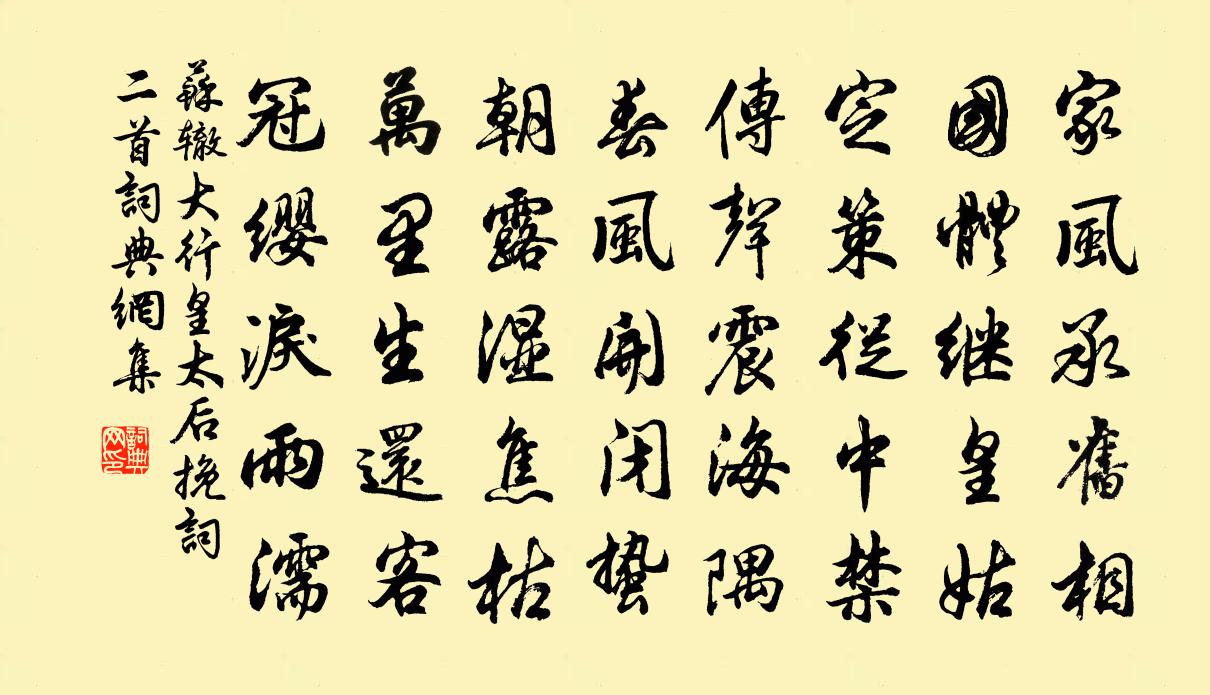 家風承舊相
國體继皇姑
定策從中禁
傳聲震海隅
春風開闭蟄
朝露濕焦枯
萬里生還客
冠缨淚雨濡
蘇辙大行皇太后挽詞
二首詞典網集
詞典
网印